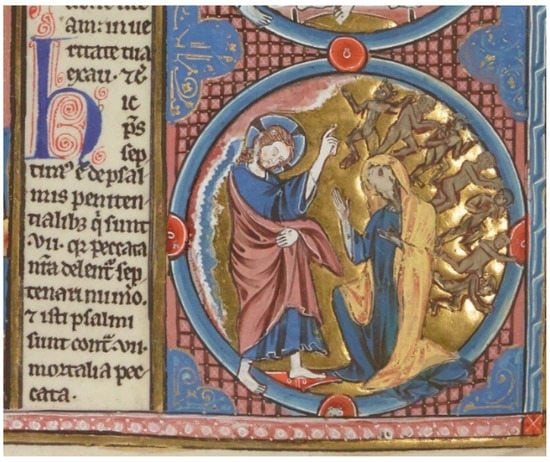 am: in ue
ritate tua
exau. ⁊ c̄
h ic
p̄s
sep
timꝰ ē de psal
mis peniten
tialibꝫ q̄ sunt
vii. qꝛ peccata
nr̄a delent᷑ sep
tenari nūo.
⁊ isti psalmi
sunt cont᷑ vii
mortalia pec
cata.